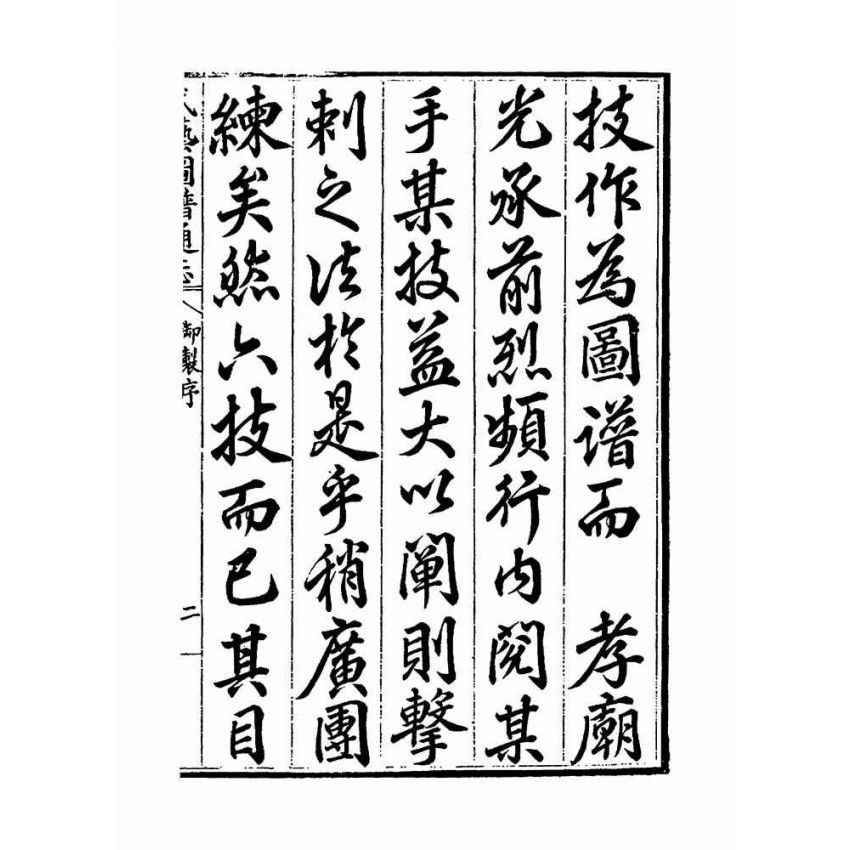 技作為圖譜而　孝廟
光承前烈頻行内閱某
手某技益大以闡則擊
刺之法於是乎稍廣團
練矣然六技而已其目
武藝圖譜通志　御製序　二